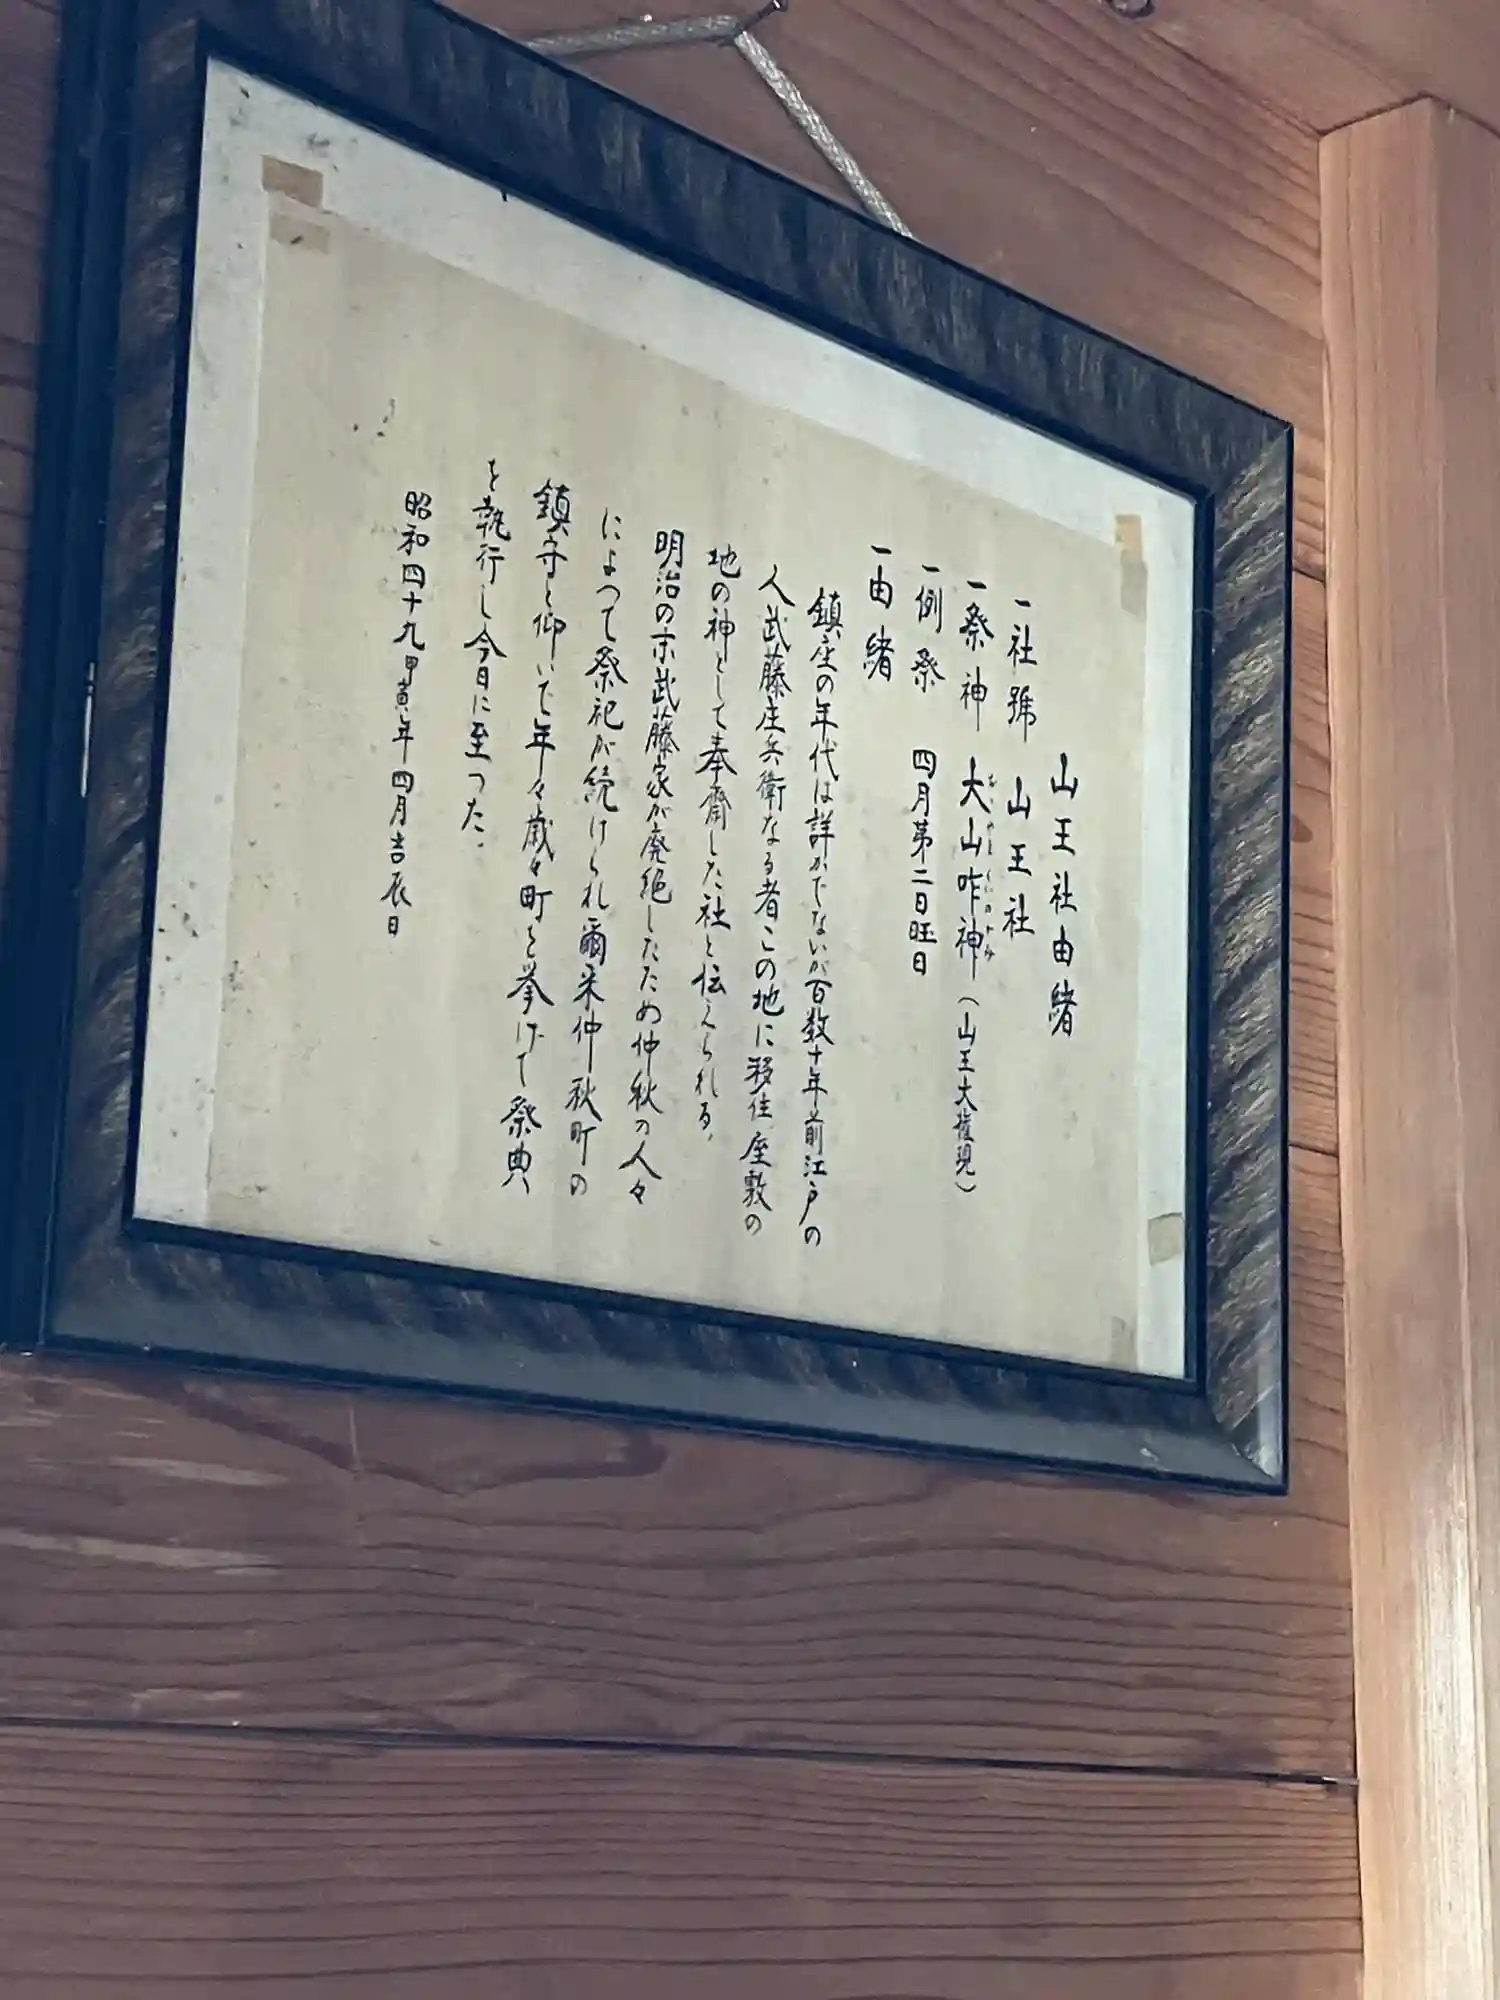 山王社由緒
一社号 山王社
一祭神 大山咋神(山王大権現)
おおやまくいのかみ
一例祭 四月第二日曜日
一由緒
鎮座の年代は詳かでないが百数十年前江戸の
人武藤庄兵衛なる者この地に移住座敷の
地の神として奉斎した社と伝えられる。
明治の末武藤家が廃絶したため仲秋の人々
によつて祭祀が続けられ爾来仲秋町の
鎮守と仰いで年々歳々町を挙げて祭典
を執行し今日に至つた。
昭和四十九甲寅年四月吉辰日